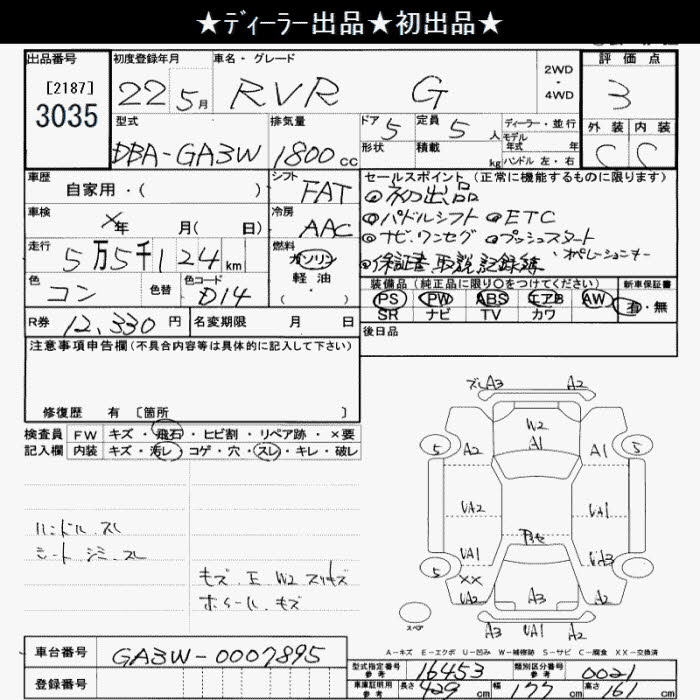 ★ディーラー出品★初出品★
出品番号 初度登録年月 車名・グレード 2WD・4WD 評価点
[2187]
3035 22 5月 RVR G 3
外装 内装
C C
型式 排気量 ドア 定員 ディーラー・並行
DBA-GA3W 1800cc 5 5人 モデル年式 年
形状 積載 kg ハンドル 左・右
車歴 シフト セールスポイント(正常に機能するものに限ります)
自家用・( ) FAT ◎初出品
車検 冷房 ◎パドルシフト ◎ETC
×年 月( 日) AAC ◎ナビ.ワンセグ ◎プッシュスタート
走行 燃料 ・オペレーションキー
5万5千124km ガソリン ◎保証書.取説.記録簿
色 色替 色コード 軽油・ 装備品(純正品に限り○をつけてください) 新車保証書
コン D14 PS PW ABS エアB AW 有・無
SR ナビ TV カワ
R券 12,330円 名変期限 月 日 後日品
注意事項申告欄(不具合内容等は具体的に記入して下さい)
修復歴 有 [箇所 ]
検査員 FW キズ・飛石・ヒビ割・リペア跡・×要
記入欄 内装 キズ・汚レ・コゲ・穴・スレ・キレ・破レ
ハンドル.スレ
シート シミ.スレ
キズ.E W2 スリキズ
ホイール.キズ
ズレA3 A2
W2
5 A2 A1 A1 5
UA2 UA1
UA1 UA3
5 XX 5
UA2 A3 A2
スペア A3 UA1 A2
A-キズ E-エクボ U-凹み W-補修跡 S-サビ C-腐食 XX-交換済
車台番号 GA3W-0007895
型式指定番号参考 16453 類別区分番号参考 0021
登録番号
車庫証明用参考 長さ 429cm 幅 177cm 高さ 161cm